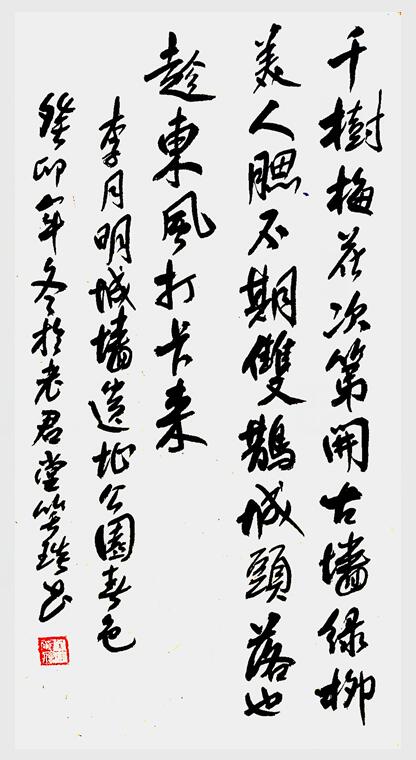 千樹梅花次第開古墻緑柳
美人腮不期雙鵲城頭落也
趁東風打卡來
李月明城墻遺址公園春色
癸卯年冬於老君堂笑琰書